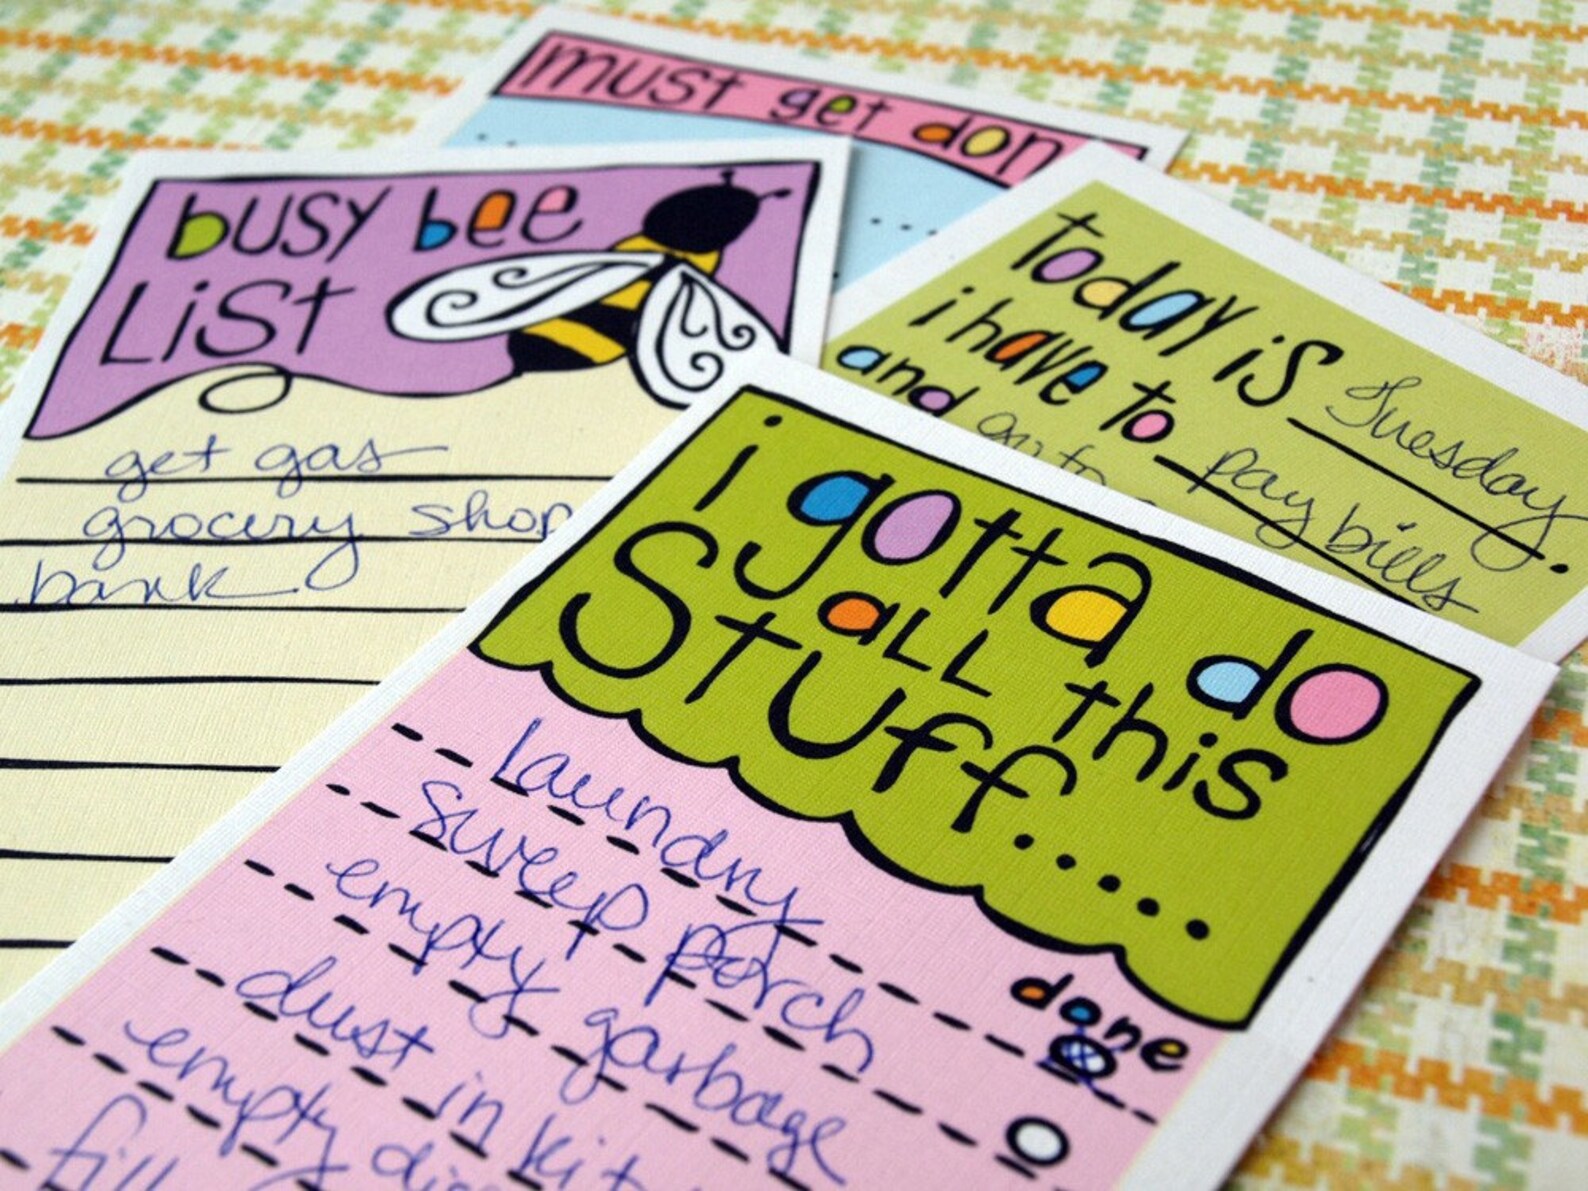 must get don
busy bee
List
get gas
grocery shop
bank
today is Tuesday.
i have to pay bills
and go to
i gotta do
all this
Stuff.....
done
laundry
sweep porch
empty garbage
dust in kit
empty
fill